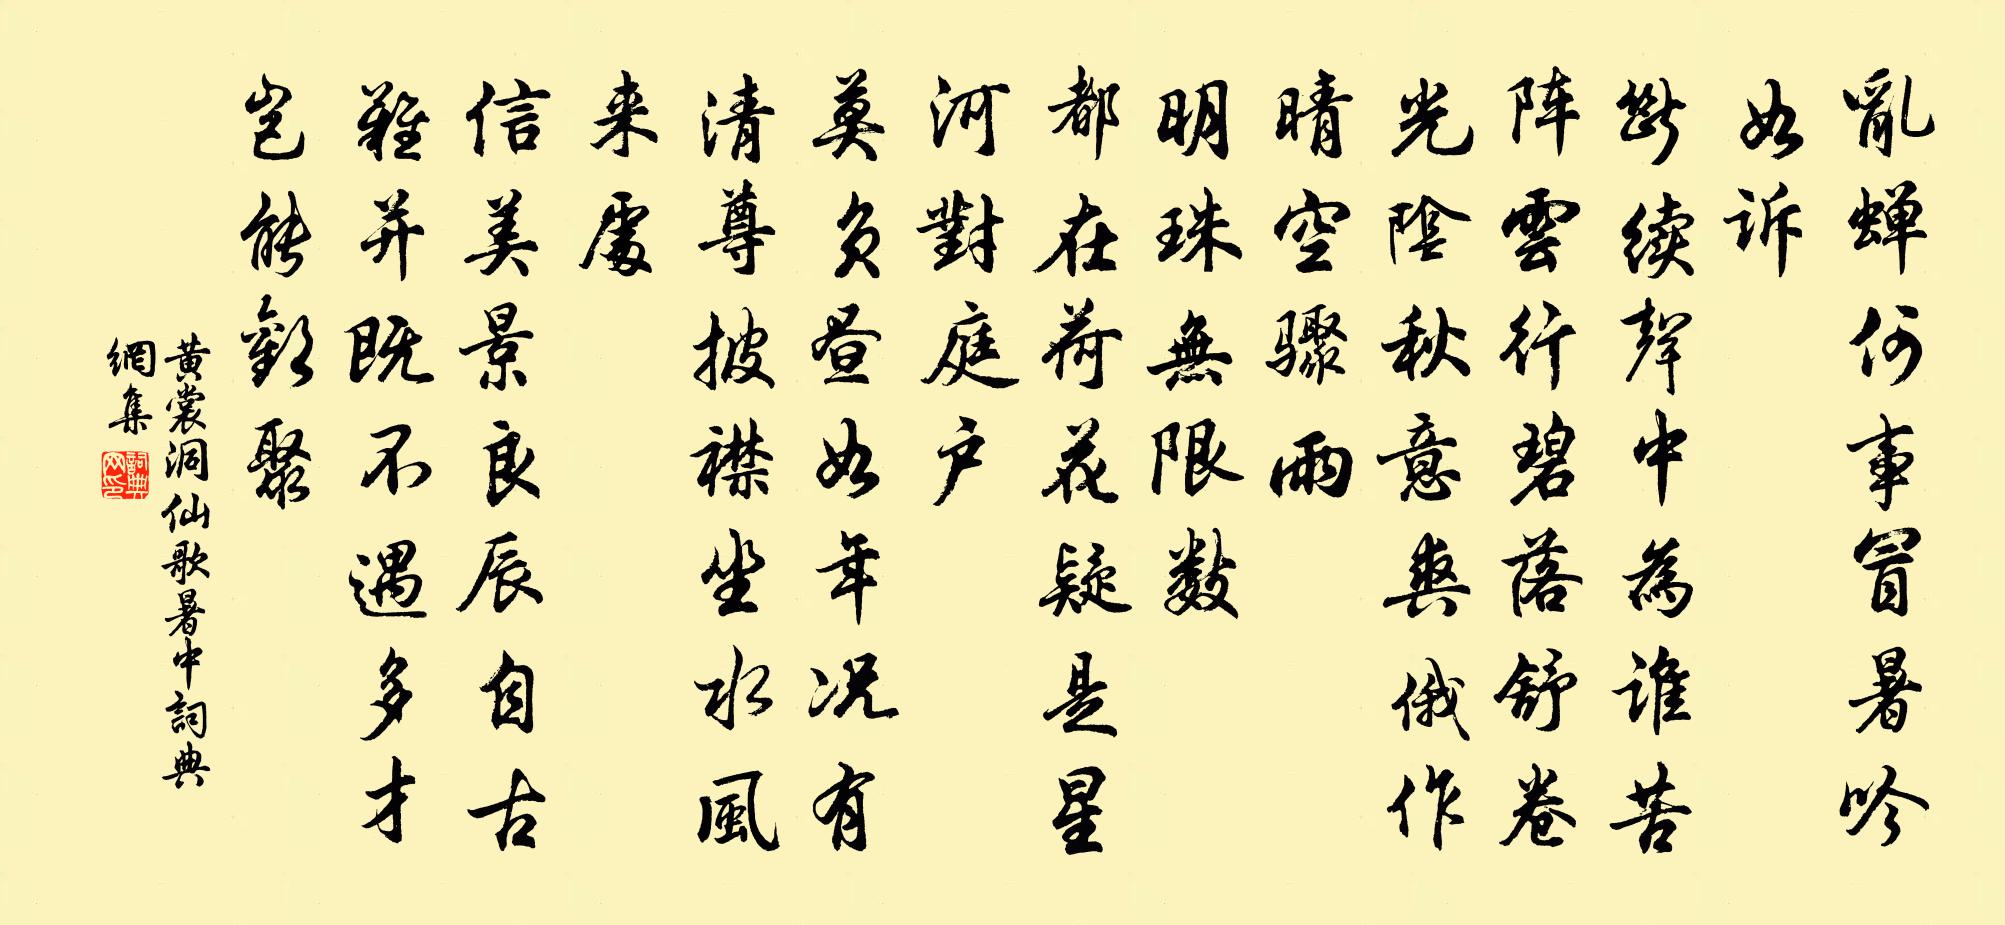 亂蟬何事冒暑吟
如訴
斷續聲中為誰苦
阵雲行碧落舒卷
光陰秋意爽俄作
晴空骤雨
明珠無限數
都在荷花疑是星
河對庭户
莫负昼如年况有
清尊披襟坐水風
来處
信美景良辰自古
難并既不遇多才
岂能歡聚
黄裳洞仙歌暑中詞典
網集
詞典网印